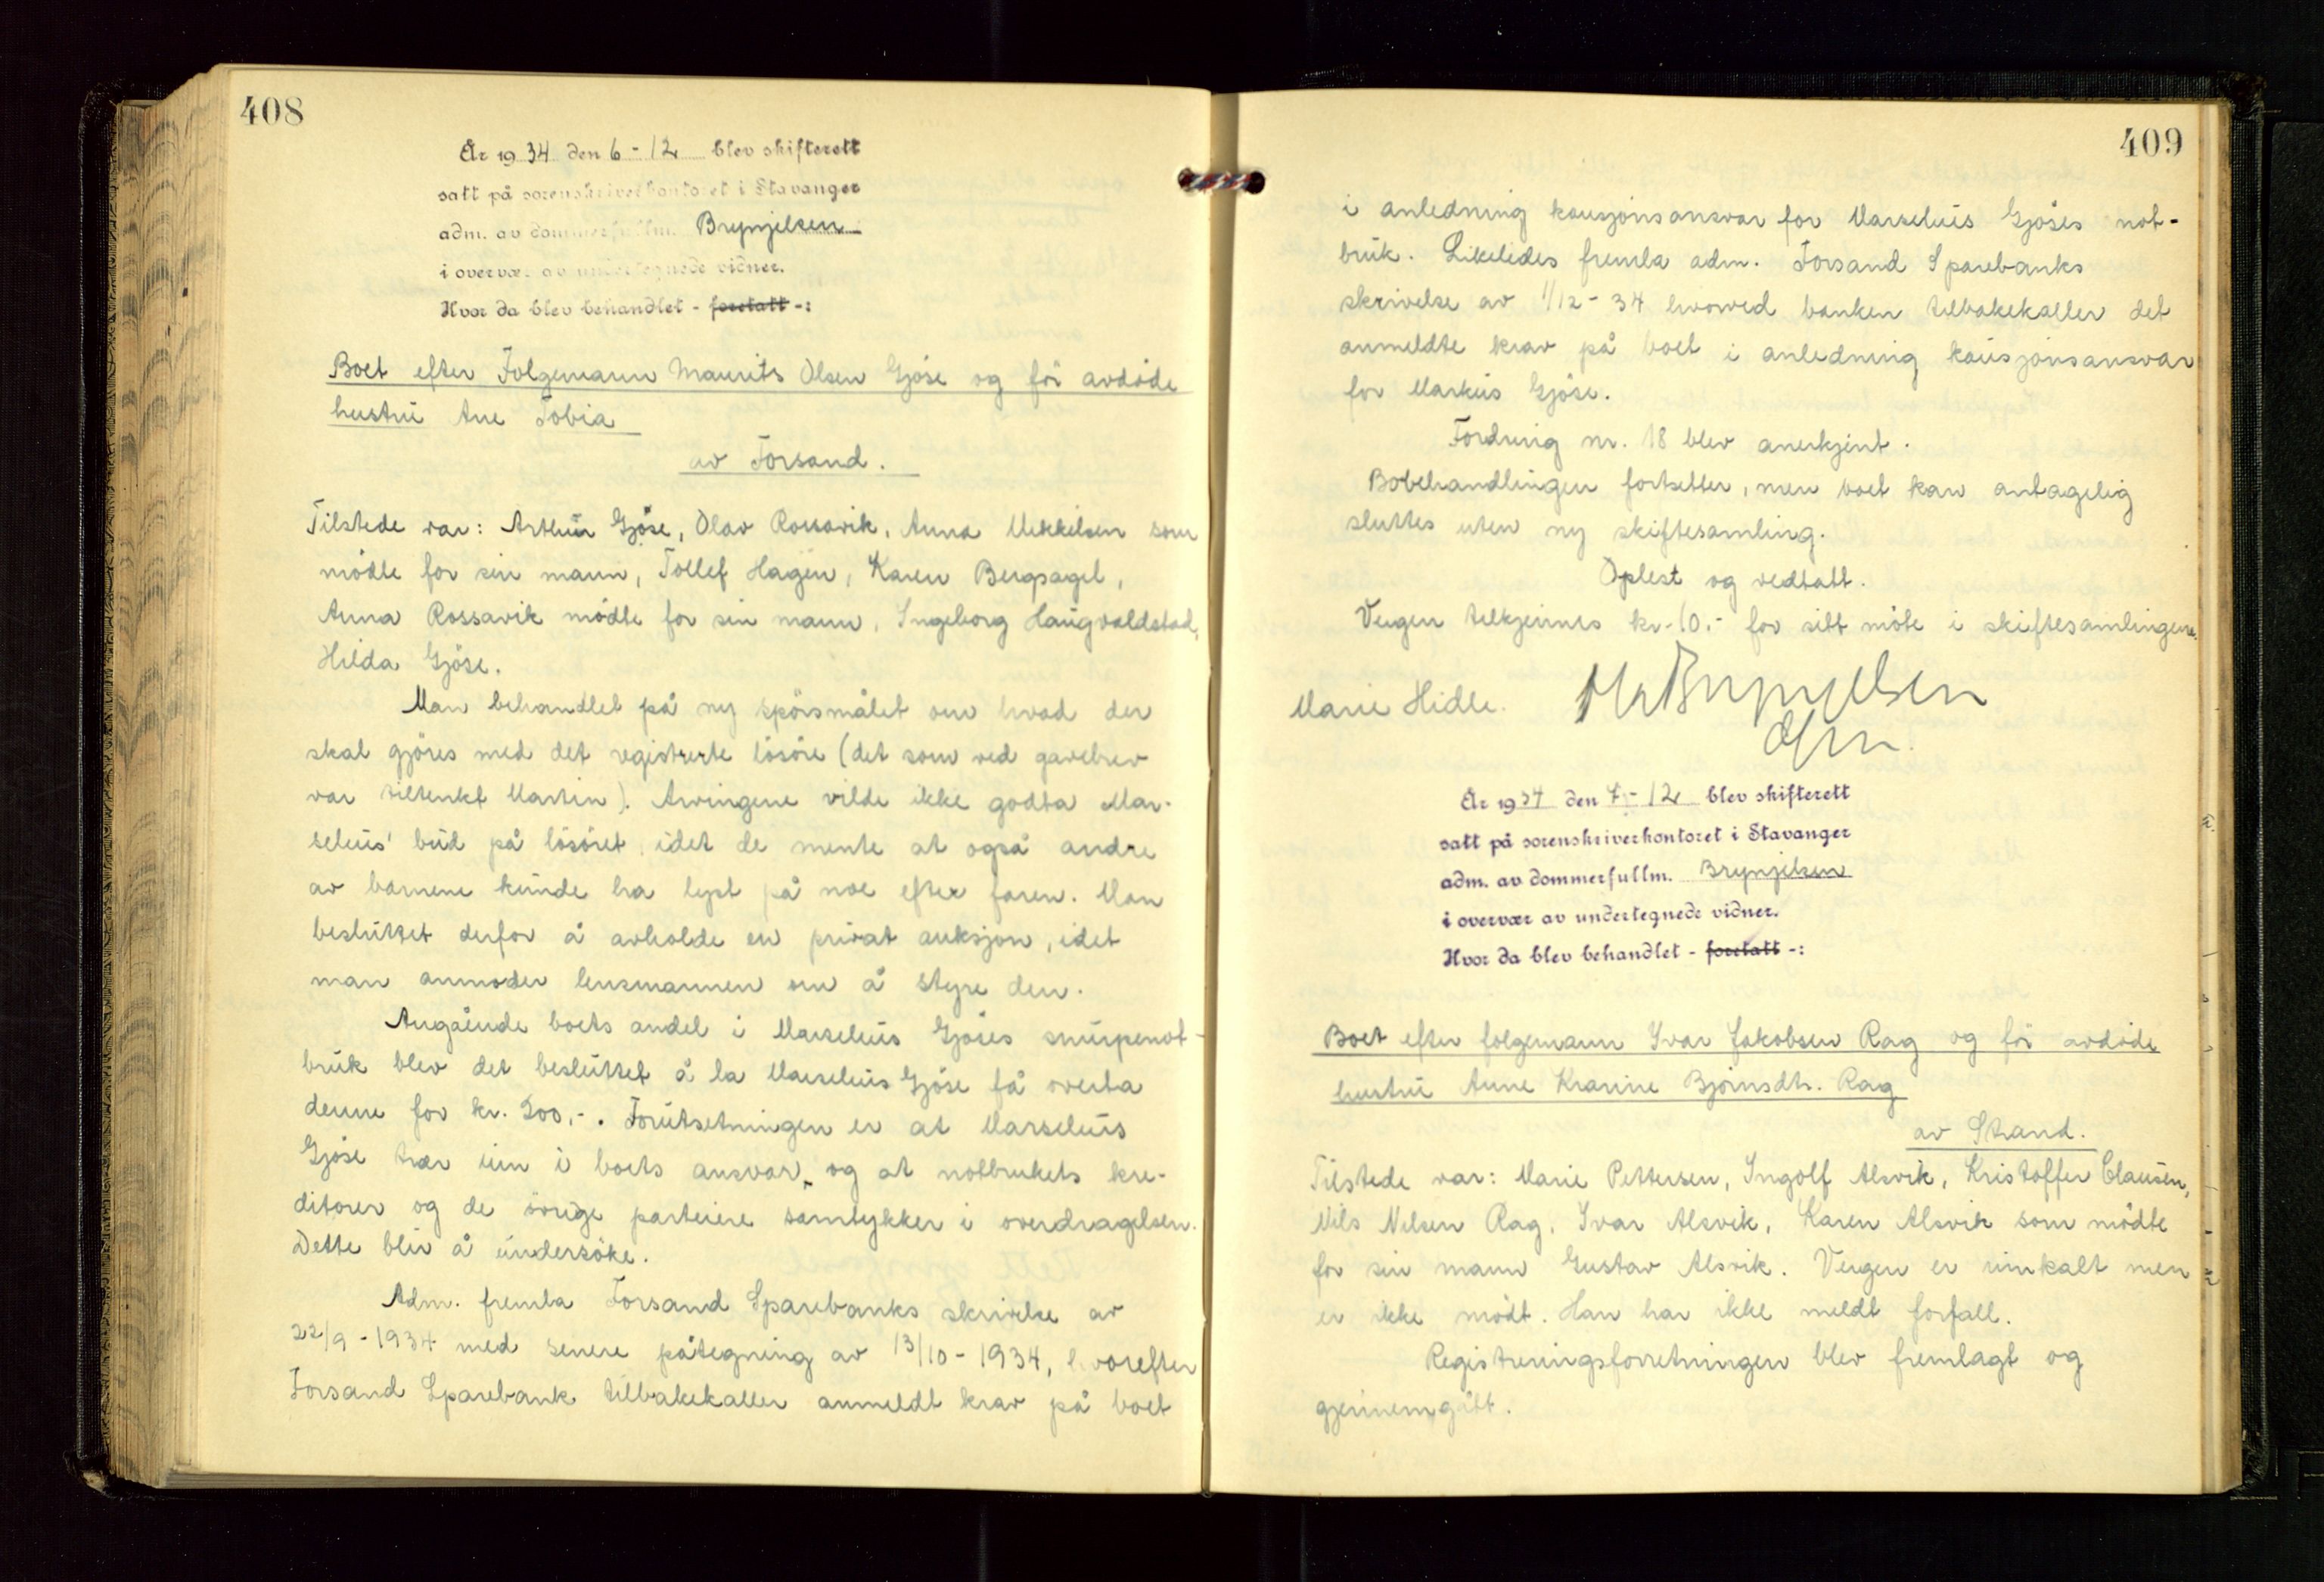 408
År 1934 den 6-12 blev skifterett
satt på sorenskriverkontoret i Stavanger
adm. av dommerfullm. Brynjelsen
i overvær av undertegnede vidner.
Hvor da blev behandlet - foretatt -:
Boet efter Folgemann Maurits Olsen Gjöse og för avdöde
hustru Ane Tobia
av Forsand.
Tilstede var: Arthur Gjöse, Olav Rossavik, Anna Mekkelsen som
mödte for sin mann, Tollef Hagen, Karen Bergsagel,
Anna Rossavik mödte for sin mann, Ingeborg Haugvaldstad,
Hilda Gjöse.
Man behandlet på ny spörsmålet om hvad der
skal gjöres med det registrerte lösöre (det som ved gavebrev
var tiltenkt Martin). Arvingene vilde ikke godta Mar-
selius' bud på lösöret, idet de mente at også andre
av barnene kunde ha lyst på noe efter faren. Man
besluttet derfor å avholde en privat auksjon, idet
man anmoder lensmannen om å styre den.
Angående boets andel i Marselius Gjöses snurpenot-
bruk blev det besluttet å la Marselius Gjöse få overta
denne for kr. 200,-. Forutsetningen er at Marselius
Gjöse trær inn i boets ansvar, og at notbrukets kre-
ditorer og de övrige parteiere samtykker i overdragelsen.
Dette blir å undersöke.
Adm. fremla Forsand Sparebanks skrivelse av
22/9-1934 med senere påtegning av 13/10-1934, hvorefter
Forsand Sparebank tilbakekaller anmeldt krav på boet
409
i anledning kausjonsansvar for Marselius Gjöses not-
bruk. Likeledes fremla adm. Forsand Sparebanks
skrivelse av 1/12-34 hvorved banken tilbakekaller det
anmeldte krav på boet i anledning kausjonsansvar
for Markus Gjöse.
Fordring nr. 18 blev anerkjent.
Bobehandlingen fortsetter, men boet kan antagelig
sluttes uten ny skiftesamling.
Oplest og vedtatt.
Vergen tilkjennes kr. 10.- for sitt möte i skiftesamlingene.
Marie Hidle. Brynjelsen
dfm.
År 1934 den 7-12 blev skifterett
satt på sorenskriverkontoret i Stavanger
adm. av dommerfullm. Brynjelsen
i overvær av undertegnede vidner.
Hvor da blev behandlet - foretatt -:
Boet efter folgemann Ivar Jakobsen Rag og för avdöde
hustru Anne Kranine Björnsdtr. Rag
av Strand.
Tilstede var: Marie Pettersen, Ingolf Alsvik, Kristoffer Clausen,
Nils Nilsen Rag, Ivar Alsvik, Karen Alsvik som mödte
for sin mann Gustav Alsvik. Vergen er innkalt men
er ikke mödt. Han har ikke meldt forfall.
Registreringsforretningen blev fremlagt og
gjennemgått.